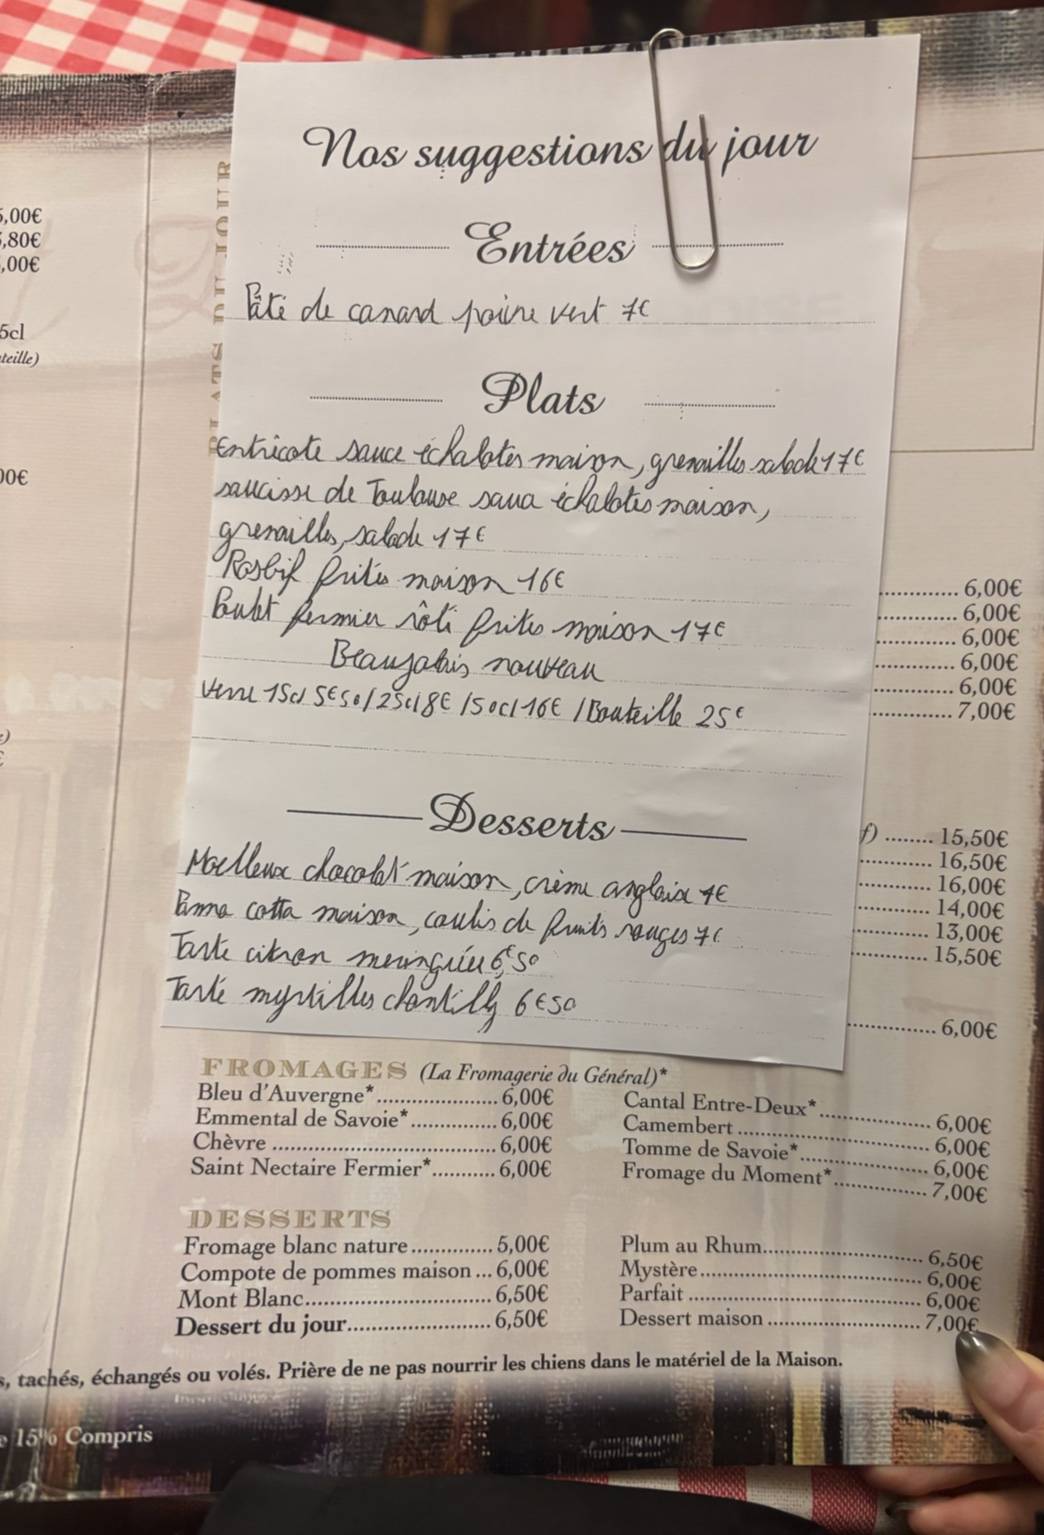 Nos suggestions du jour
Entrées
Pâté de canard poivre vert 7€
Plats
Entricote sauce échalotes maison, grenailles salade 17€
saucisse de Toulouse sauce échalotes maison,
grenailles, salade 17€
Rosbif frites maison 16€
Poulet fermier rôti frites maison 17€
Beaujolais nouveau
Verre 15cl 5€50 / 25cl 8€ / 50cl 16€ / Bouteille 25€
Desserts
Moelleux chocolat maison, crème anglaise 7€
Panna cotta maison, coulis de fruits rouges 7€
Tarte citron meringuée 6€50
Tarte myrtilles chantilly 6€50
PLATS DU JOUR
,00€
,80€
,00€
5cl
teille)
00€
6,00€
6,00€
6,00€
6,00€
6,00€
7,00€
f) ........ 15,50€
16,50€
16,00€
14,00€
13,00€
15,50€
6,00€
FROMAGES (La Fromagerie du Général)*
Bleu d'Auvergne* ..................... 6,00€
Emmental de Savoie* .............. 6,00€
Chèvre ....................................... 6,00€
Saint Nectaire Fermier* ........... 6,00€
Cantal Entre-Deux* ................... 6,00€
Camembert ................................ 6,00€
Tomme de Savoie* ..................... 6,00€
Fromage du Moment* ............... 7,00€
DESSERTS
Fromage blanc nature .............. 5,00€
Compote de pommes maison ... 6,00€
Mont Blanc ................................ 6,50€
Dessert du jour ......................... 6,50€
Plum au Rhum .......................... 6,50€
Mystère ...................................... 6,00€
Parfait ........................................ 6,00€
Dessert maison .......................... 7,00€
s, tachés, échangés ou volés. Prière de ne pas nourrir les chiens dans le matériel de la Maison.
e 15% Compris